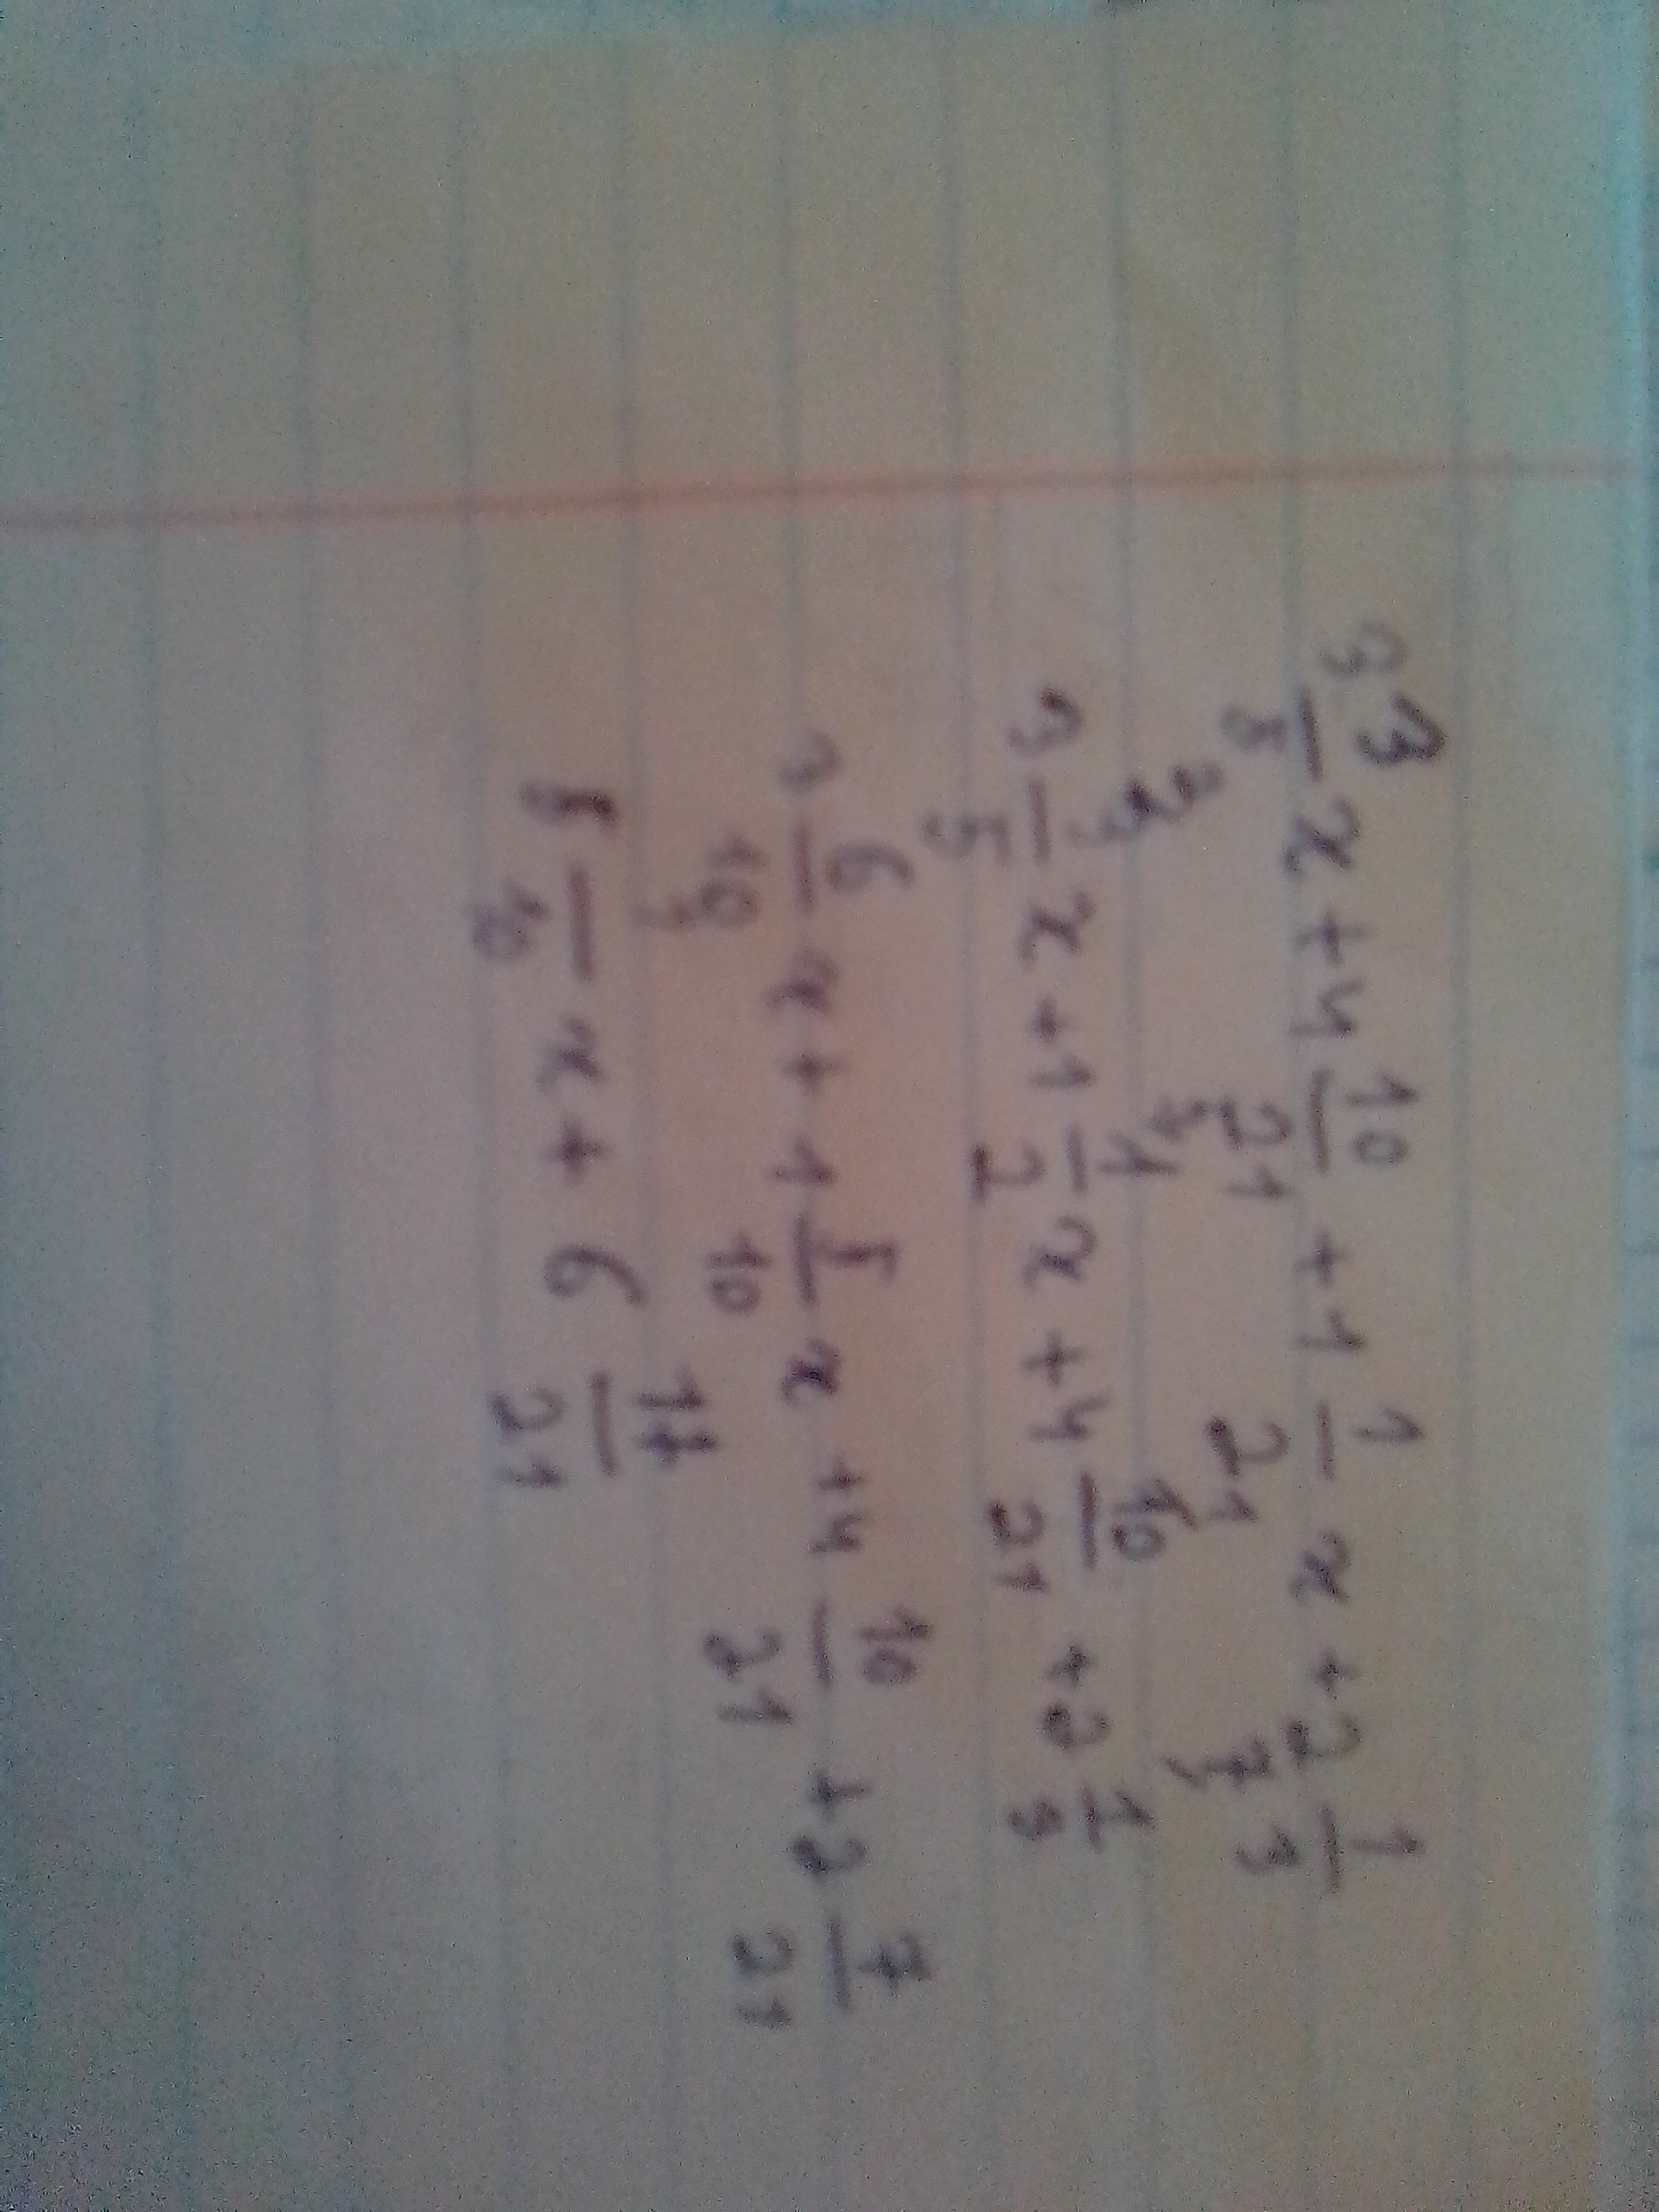 3 3/5 x + 4 10/21 + 1 1/21 x + 2 1/3
3 3/5 x + 1 1/2 x + 4 10/21 + 2 1/3
3 6/10 x + 1 5/10 x + 4 10/21 + 2 7/21
/10 x + 6 17/21